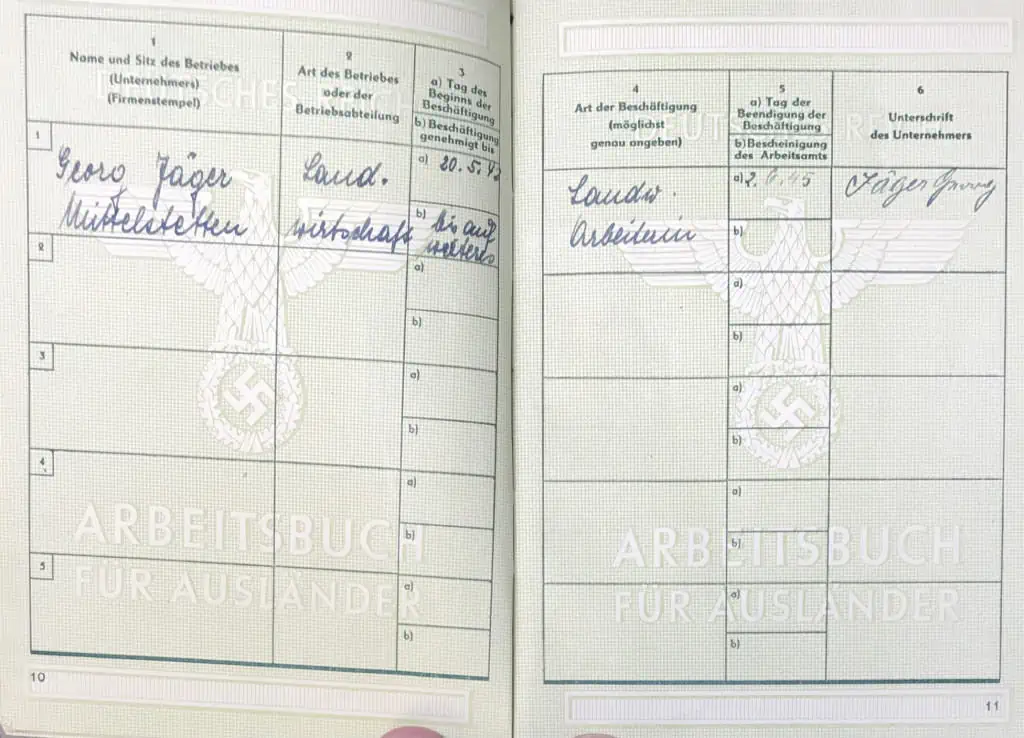 1
Name und Sitz des Betriebes
(Unternehmers)
(Firmenstempel)
2
Art des Betriebes
oder der
Betriebsabteilung
3
a) Tag des
Beginns der
Beschäftigung
b) Beschäftigung
genehmigt bis
1
Georg Jäger
Mittelstetten
Land.
wirtschaft
a) 20.5.42
b) bis auf
weiteres
2
a)
b)
3
a)
b)
4
a)
b)
5
a)
b)
DEUTSCHES REICH
ARBEITSBUCH
FÜR AUSLÄNDER
10
4
Art der Beschäftigung
(möglichst
genau angeben)
5
a) Tag der
Beendigung der
Beschäftigung
b) Bescheinigung
des Arbeitsamts
6
Unterschrift
des Unternehmers
Landw.
Arbeiterin
a) 2.6.45
b)
Jäger Georg
a)
b)
a)
b)
a)
b)
a)
b)
DEUTSCHES REICH
ARBEITSBUCH
FÜR AUSLÄNDER
11